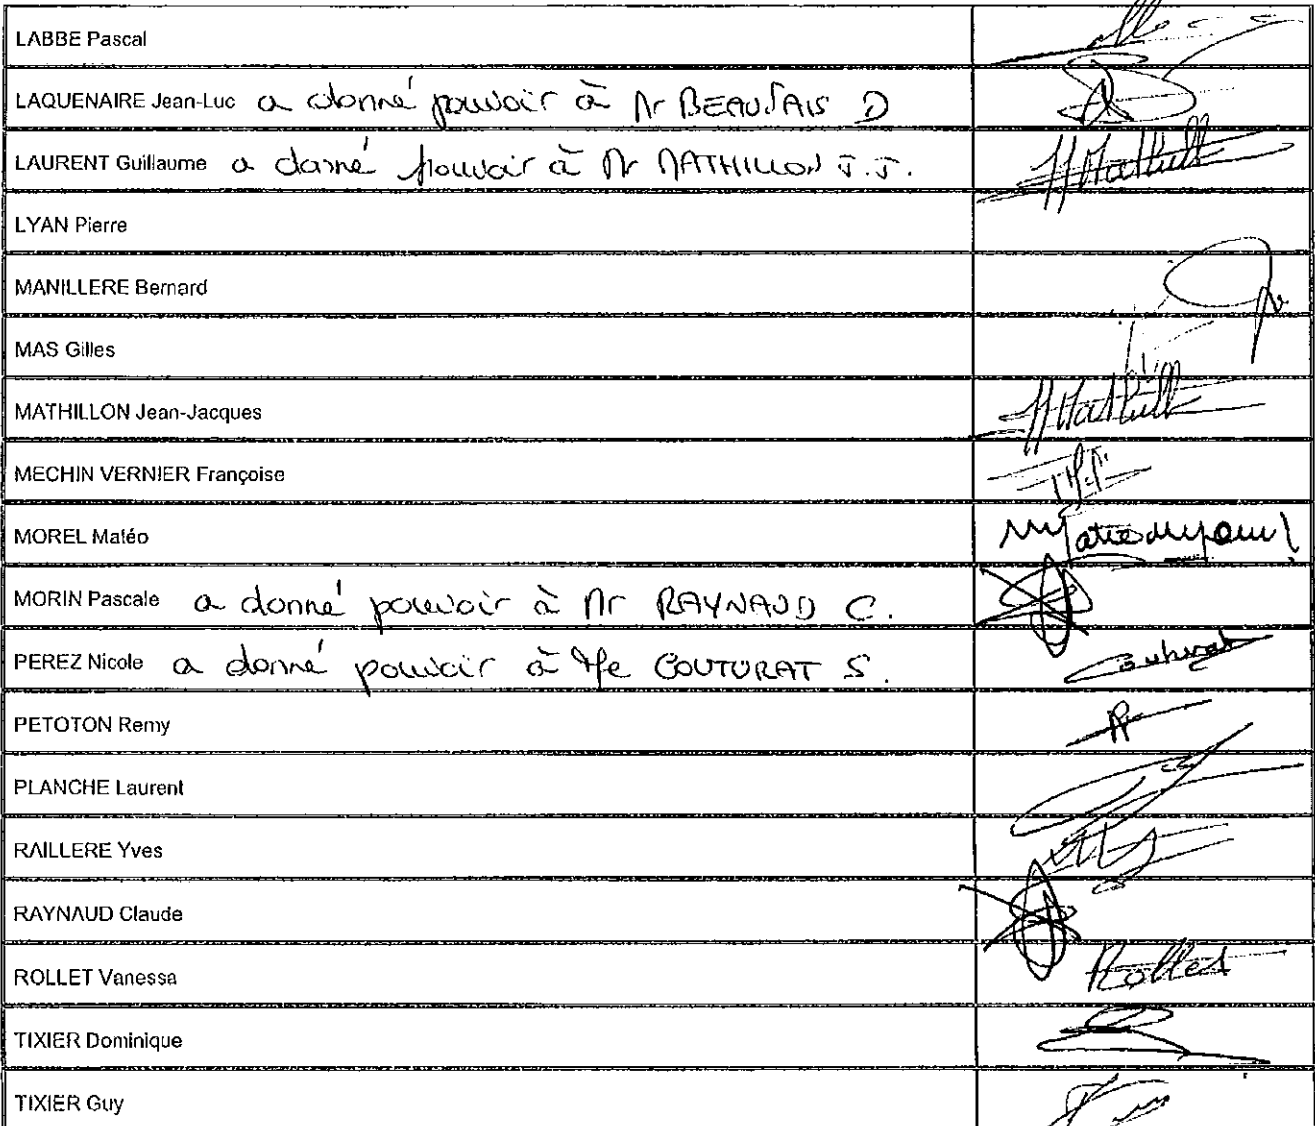 LABBE Pascal
LAQUENAIRE Jean-Luc a donné pouvoir à Mr BEAUVAIS D
LAURENT Guillaume a donné pouvoir à Mr MATHILLON J.J.
LYAN Pierre
MANILLERE Bernard
MAS Gilles
MATHILLON Jean-Jacques
MECHIN VERNIER Françoise
MOREL Matéo
MORIN Pascale a donné pouvoir à Mr RAYNAUD C.
PEREZ Nicole a donné pouvoir à Me COUTURAT S.
Couturat
PETOTON Remy
PLANCHE Laurent
RAILLERE Yves
RAYNAUD Claude
ROLLET Vanessa Rollet
TIXIER Dominique
TIXIER Guy